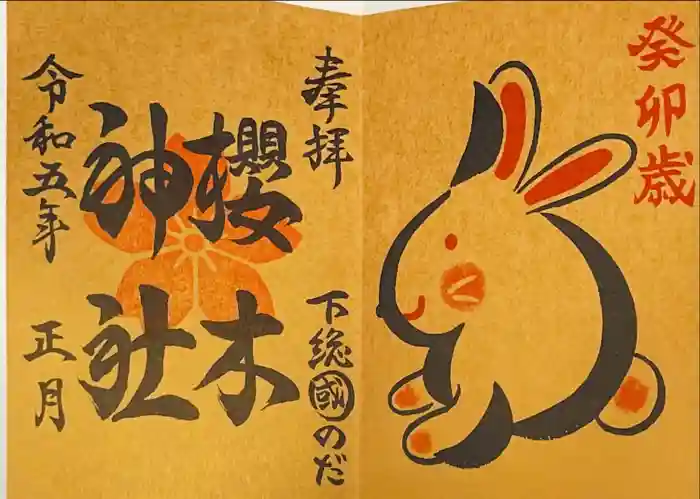 癸卯歳
奉拝
下総國のだ
櫻木
神社
令和五年
正月